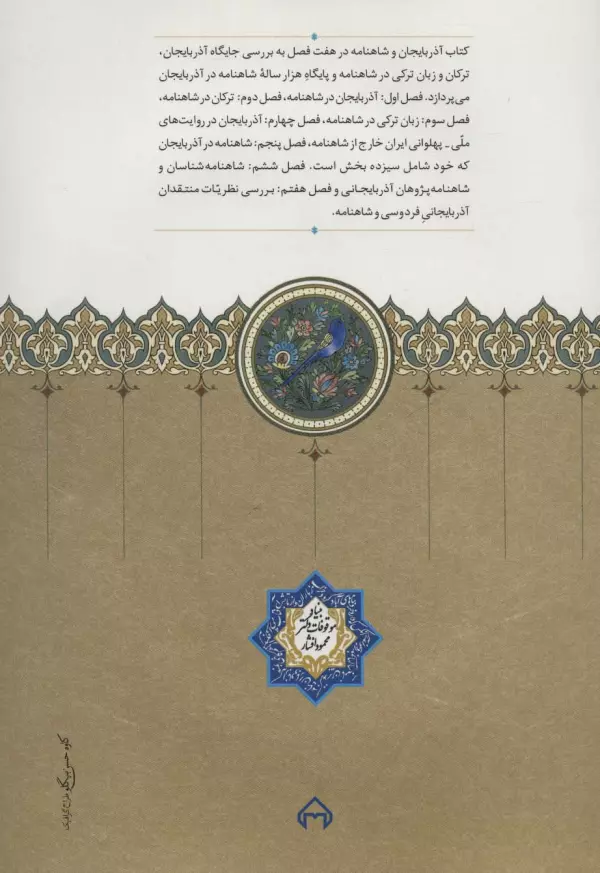 کتاب آذربایجان و شاهنامه در هفت فصل به بررسی جایگاه آذربایجان،
ترکان و زبان ترکی در شاهنامه و پایگاهِ هزار سالهٔ شاهنامه در آذربایجان
می‌پردازد. فصل اول: آذربایجان در شاهنامه، فصل دوم: ترکان در شاهنامه،
فصل سوم: زبان ترکی در شاهنامه، فصل چهارم: آذربایجان در روایت‌های
ملّی ـ پهلوانی ایران خارج از شاهنامه، فصل پنجم: شاهنامه در آذربایجان
که خود شامل سیزده بخش است. فصل ششم: شاهنامه‌شناسان و
شاهنامه‌پژوهان آذربایجانی و فصل هفتم: بررسی نظریّات منتقدان
آذربایجانیِ فردوسی و شاهنامه.
بنیاد
موقوفات دکتر
محمود افشار
کاوه حسن بیگلو طراح گرافیک